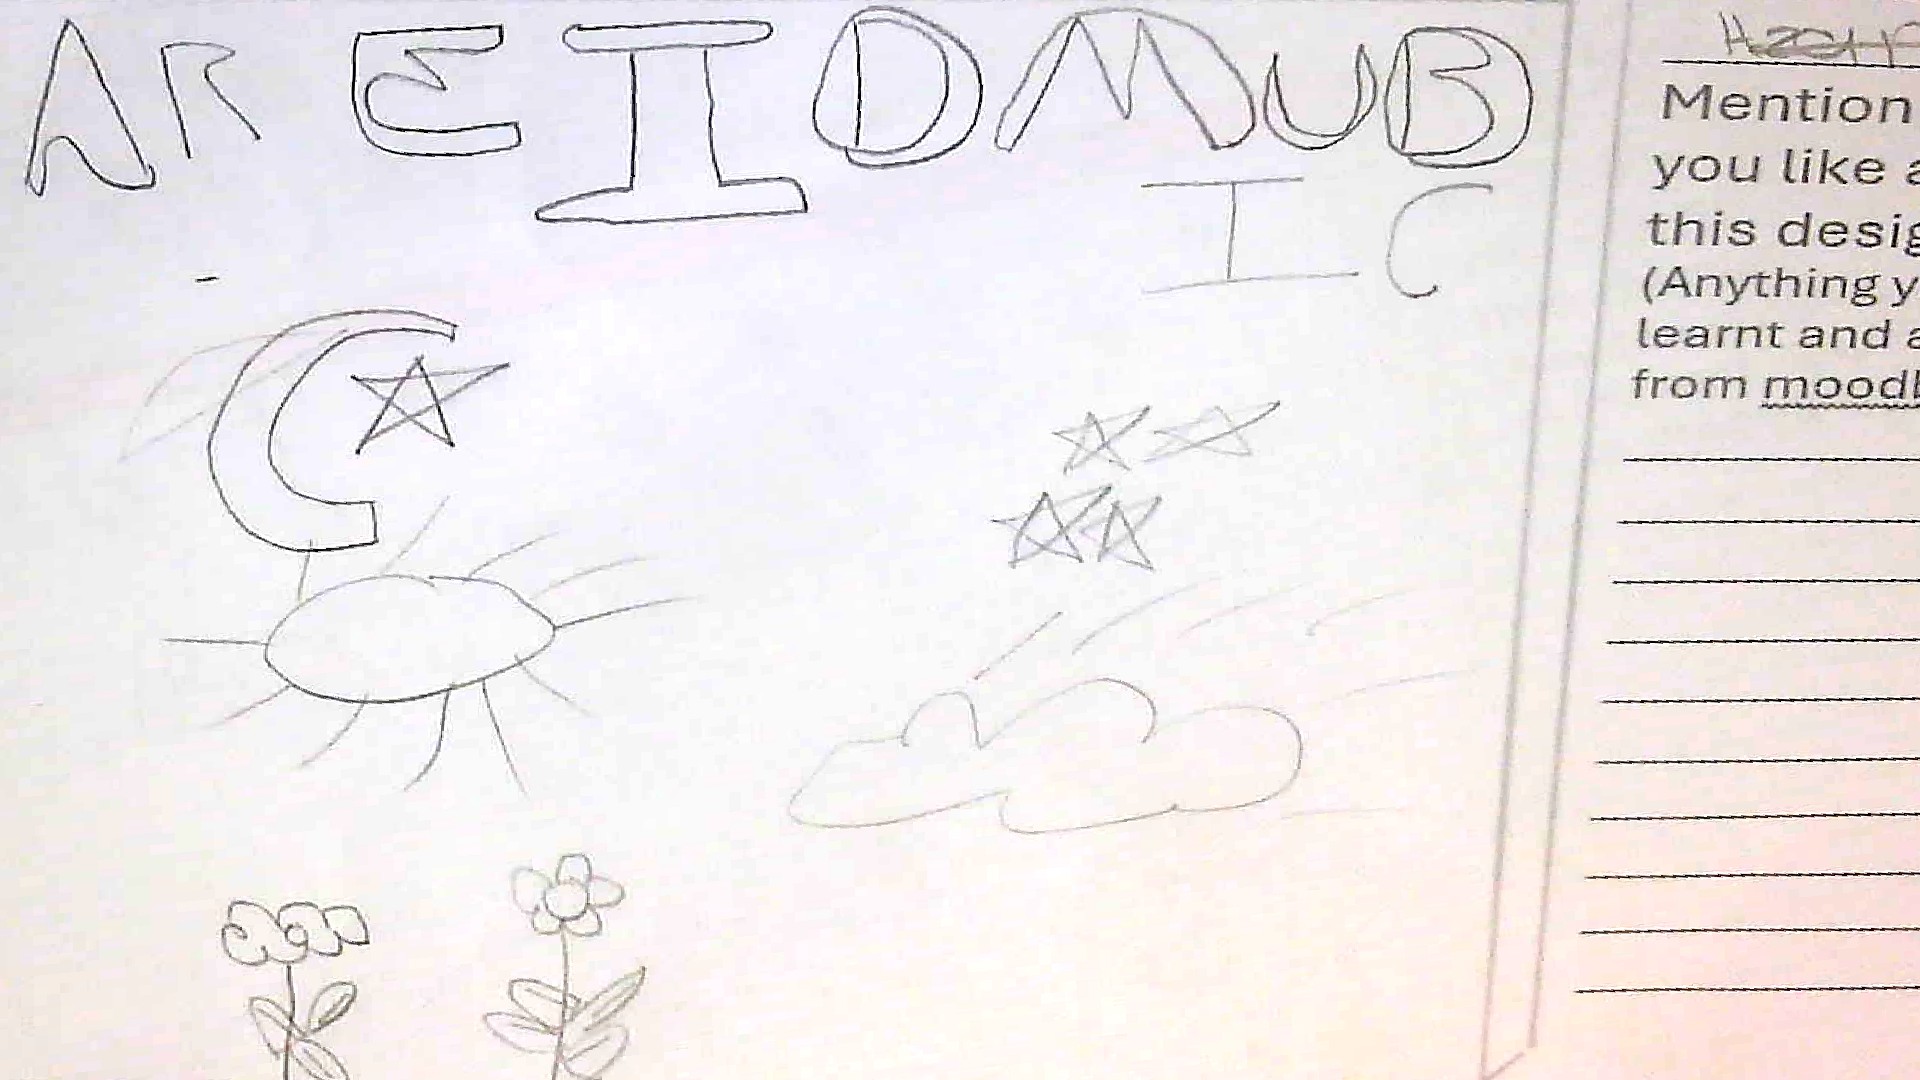 AR EIDMUB
IC
Mention
you like a
this desig
(Anything y
learnt and a
from moodb